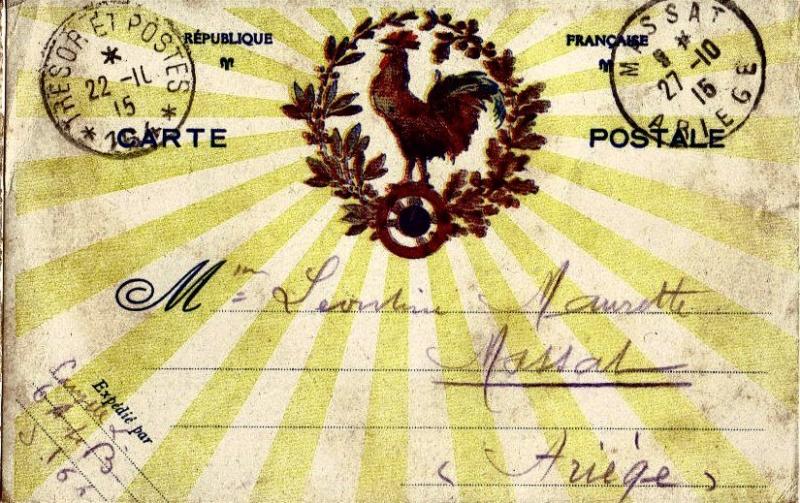 TRESOR ET POSTES
*
22 -11
15
RÉPUBLIQUE FRANÇAISE
MASSAT
*
27-10
15
ARIEGE
CARTE POSTALE
Mme Léontine Maurette
Massat
(Ariège)
Expédié par